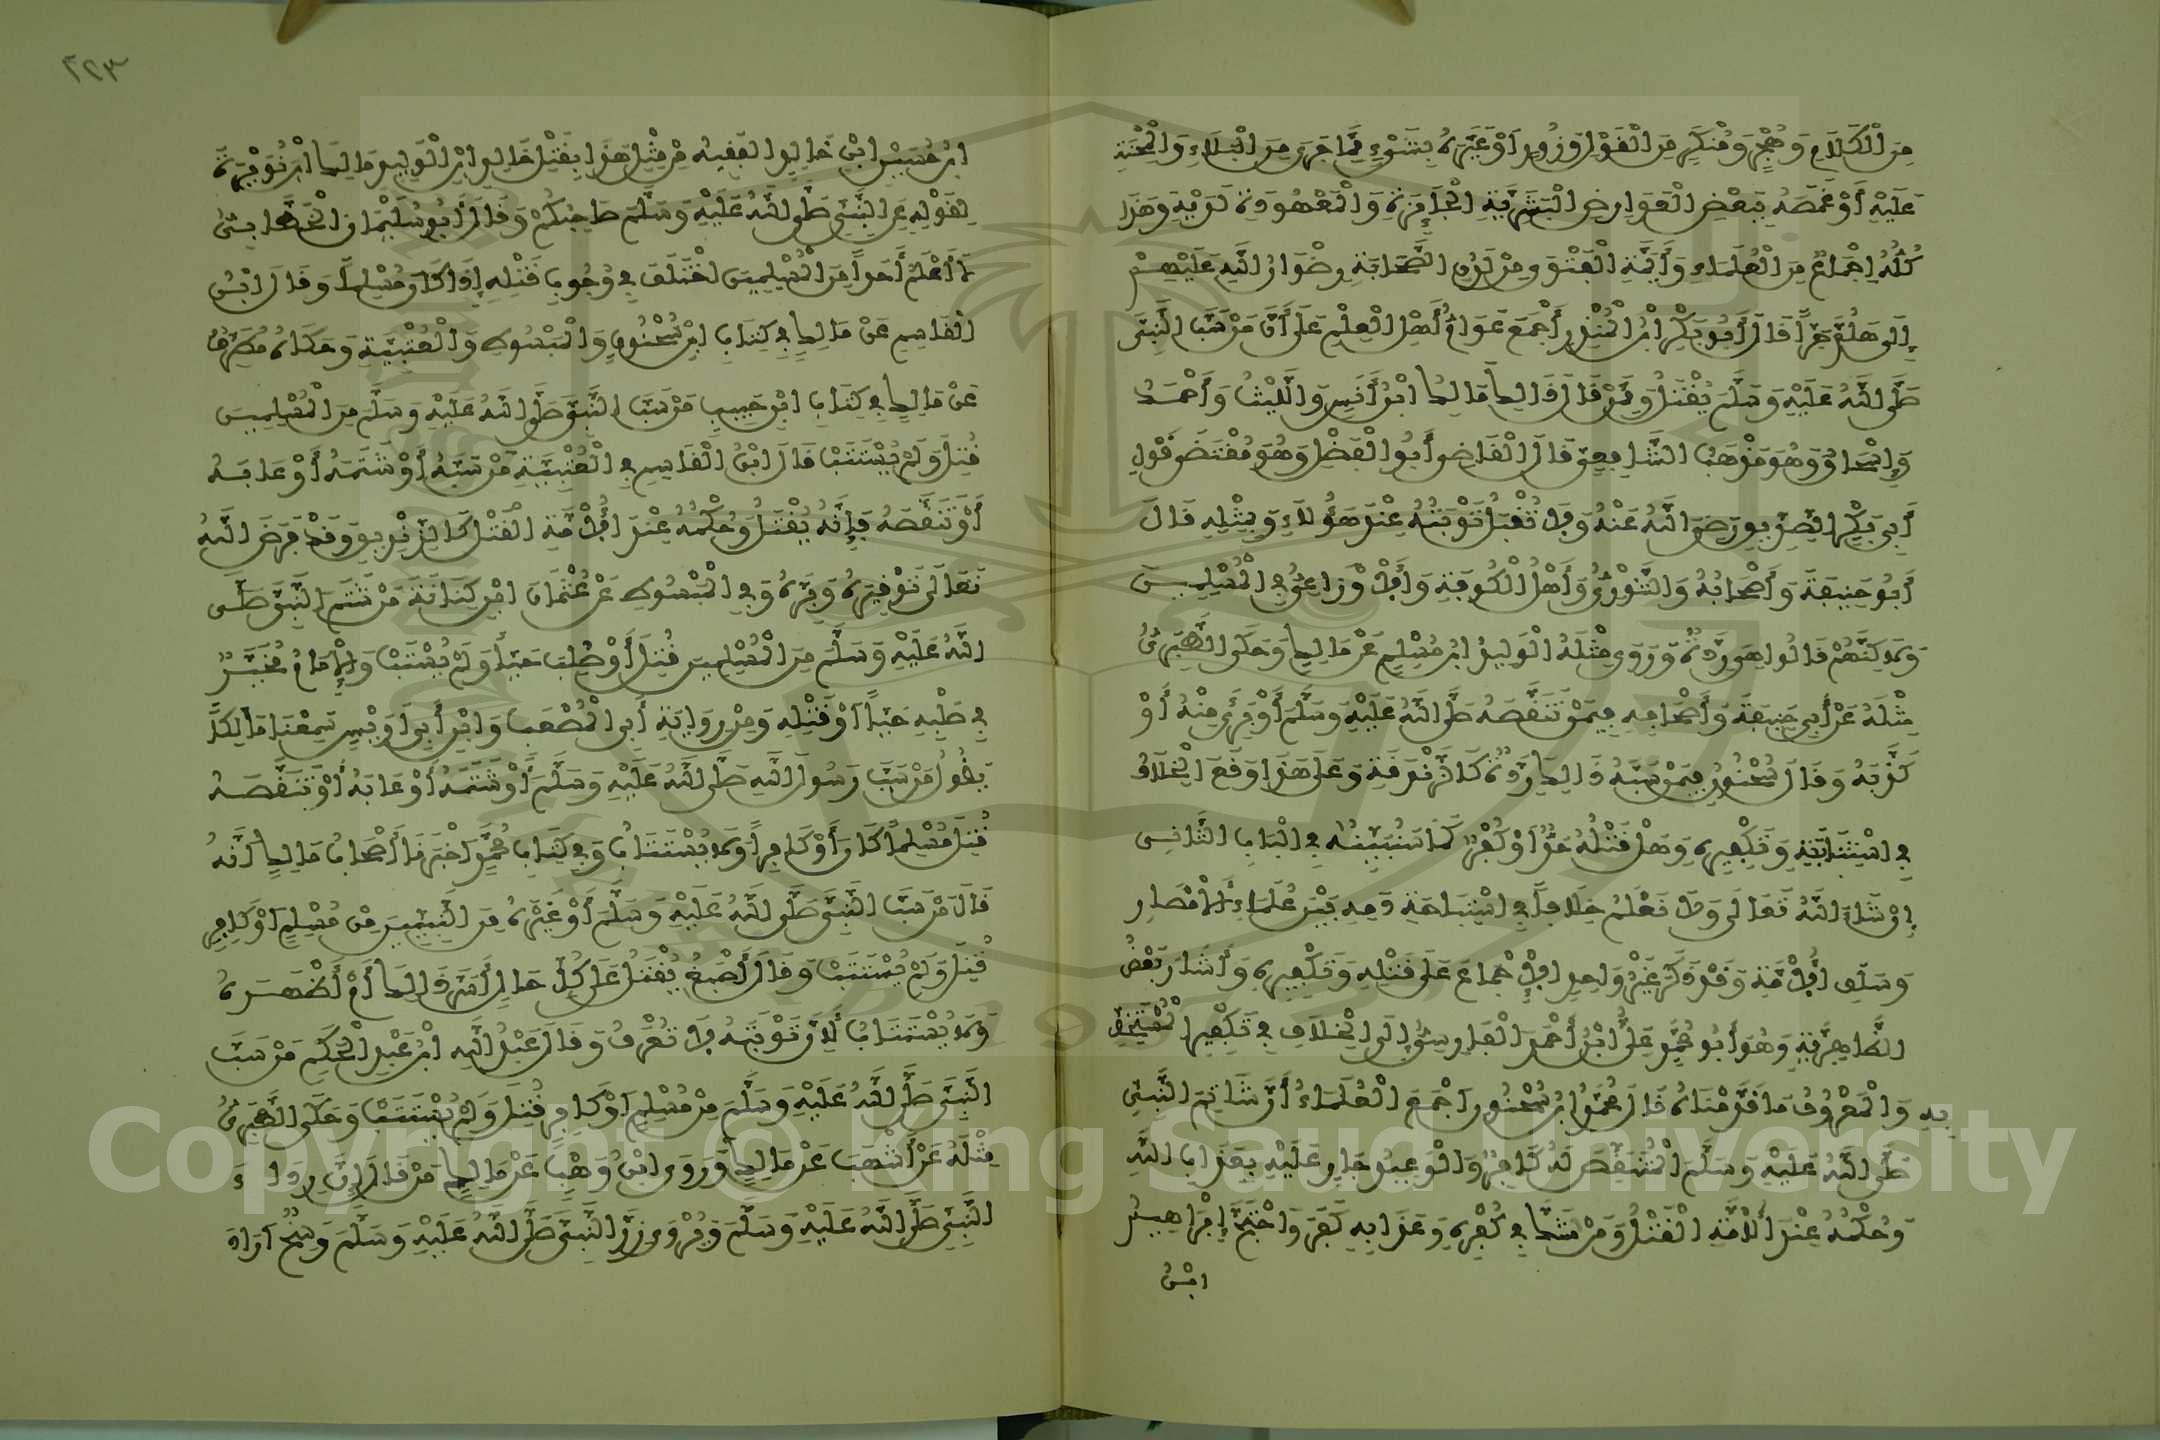 مِنَ الْكَلَامِ وَهُجْرٍ وَمُنْكَرٍ مِنَ الْقَوْلِ وَزُورٍ أَوْ عَيَّرَهُ بِشَيْءٍ مِمَّا جَرَى مِنَ الْبَلَاءِ وَالْمِحْنَةِ
عَلَيْهِ أَوْ غَمَصَهُ بِبَعْضِ الْعَوَارِضِ الْبَشَرِيَّةِ الْجَائِزَةِ وَالْمَعْهُودَةِ لَدَيْهِ وَهَذَا
كُلُّهُ إِجْمَاعٌ مِنَ الْعُلَمَاءِ وَأَئِمَّةِ الْفَتْوَى مِنْ لَدُنِ الصَّحَابَةِ رِضْوَانُ اللَّهِ عَلَيْهِمْ
إِلَى هَلُمَّ جَرًّا قَالَ أَبُو بَكْرِ ابْنُ الْمُنْذِرِ أَجْمَعَ عَوَامُّ أَهْلِ الْعِلْمِ عَلَى أَنَّ مَنْ سَبَّ النَّبِيَّ
صَلَّى اللَّهُ عَلَيْهِ وَسَلَّمَ يُقْتَلُ وَمِمَّنْ قَالَ ذَلِكَ مَالِكُ ابْنُ أَنَسٍ وَاللَّيْثُ وَأَحْمَدُ
وَإِسْحَاقُ وَهُوَ مَذْهَبُ الشَّافِعِيِّ قَالَ الْقَاضِي أَبُو الْفَضْلِ وَهُوَ مُقْتَضَى قَوْلِ
أَبِي بَكْرٍ الصِّدِّيقِ رَضِيَ اللَّهُ عَنْهُ وَلَا تُقْبَلُ تَوْبَتُهُ عِنْدَ هَؤُلَاءِ وَبِمِثْلِهِ قَالَ
أَبُو حَنِيفَةَ وَأَصْحَابُهُ وَالثَّوْرِيُّ وَأَهْلُ الْكُوفَةِ وَالْأَوْزَاعِيُّ فِي الْمُسْلِمِينَ
وَلَاكِنَّهُمْ قَالُوا هِيَ رِدَّةٌ وَرَوَى مِثْلَهُ الْوَلِيدُ ابْنُ مُسْلِمٍ عَنْ مَالِكٍ وَحَكَى الطَّبَرِيُّ
مِثْلَهُ عَنْ أَبِي حَنِيفَةَ وَأَصْحَابِهِ فِيمَنْ تَنَقَّصَهُ صَلَّى اللَّهُ عَلَيْهِ وَسَلَّمَ أَوْ بَرِئَ مِنْهُ أَوْ
كَذَّبَهُ وَقَالَ سُحْنُونٌ فِيمَنْ سَبَّهُ ذَلِكَ رِدَّةٌ كَالزَّنْدَقَةِ وَعَلَى هَذَا وَقَعَ الْخِلَافُ
فِي اسْتِتَابَتِهِ وَتَكْفِيرِهِ وَهَلْ قَتْلُهُ حَدٌّ أَوْ كُفْرٌ كَمَا سَنُبَيِّنُهُ فِي الْبَابِ الثَّانِي
إِنْ شَاءَ اللَّهُ تَعَالَى وَلَا نَعْلَمُ خِلَافًا فِي اسْتِبَاحَةِ دَمِهِ بَيْنَ عُلَمَاءِ الْأَمْصَارِ
وَسَلَفِ الْأُمَّةِ وَقَدْ ذَكَرَ غَيْرُ وَاحِدٍ الْإِجْمَاعَ عَلَى قَتْلِهِ وَتَكْفِيرِهِ وَأَشَارَ بَعْضُ
الظَّاهِرِيَّةِ وَهُوَ أَبُو مُحَمَّدٍ عَلِيُّ ابْنُ أَحْمَدَ الْفَارِسِيُّ إِلَى الْخِلَافِ فِي تَكْفِيرِ الْمُسْتَخِفِّ
بِهِ وَالْمَعْرُوفُ مَا قَدَّمْنَاهُ قَالَ مُحَمَّدُ ابْنُ سُحْنُونٍ أَجْمَعَ الْعُلَمَاءُ أَنَّ شَاتِمَ النَّبِيِّ
صَلَّى اللَّهُ عَلَيْهِ وَسَلَّمَ الْمُتَنَقِّصَ لَهُ كَافِرٌ وَالْوَعِيدُ جَارٍ عَلَيْهِ بِعَذَابِ اللَّهِ
وَحُكْمُهُ عِنْدَ الْأُمَّةِ الْقَتْلُ وَمَنْ شَكَّ فِي كُفْرِهِ وَعَذَابِهِ كَفَرَ وَاحْتَجَّ إِبْرَاهِيمُ
ابْنُ
٢٢٣
ابْنُ حُسَيْنِ ابْنِ خَالِدٍ الْفَقِيهُ فِي مِثْلِ هَذَا بِقَتْلِ خَالِدِ ابْنِ الْوَلِيدِ مَالِكَ ابْنَ نُوَيْرَةَ
لِقَوْلِهِ عَنِ النَّبِيِّ صَلَّى اللَّهُ عَلَيْهِ وَسَلَّمَ صَاحِبُكُمْ وَقَالَ أَبُو سُلَيْمَانَ الْخَطَّابِيُّ
لَا أَعْلَمُ أَحَدًا مِنَ الْمُسْلِمِينَ اخْتَلَفَ فِي وُجُوبِ قَتْلِهِ إِذَا كَانَ مُسْلِمًا وَقَالَ ابْنُ
الْقَاسِمِ عَنْ مَالِكٍ فِي كِتَابِ ابْنِ سُحْنُونٍ وَالْمَبْسُوطِ وَالْعُتْبِيَّةِ وَحَكَاهُ مُطَرِّفٌ
عَنْ مَالِكٍ فِي كِتَابِ ابْنِ حَبِيبٍ مَنْ سَبَّ النَّبِيَّ صَلَّى اللَّهُ عَلَيْهِ وَسَلَّمَ مِنَ الْمُسْلِمِينَ
قُتِلَ وَلَمْ يُسْتَتَبْ قَالَ ابْنُ الْقَاسِمِ فِي الْعُتْبِيَّةِ مَنْ سَبَّهُ أَوْ شَتَمَهُ أَوْ عَابَهُ
أَوْ تَنَقَّصَهُ فَإِنَّهُ يُقْتَلُ وَحُكْمُهُ عِنْدَ الْأُمَّةِ الْقَتْلُ كَالزِّنْدِيقِ وَقَدْ فَرَضَ اللَّهُ
تَعَالَى تَوْقِيرَهُ وَبِرَّهُ وَفِي الْمَبْسُوطِ عَنْ عُثْمَانَ ابْنِ كِنَانَةَ مَنْ شَتَمَ النَّبِيَّ صَلَّى
اللَّهُ عَلَيْهِ وَسَلَّمَ مِنَ الْمُسْلِمِينَ قُتِلَ أَوْ صُلِبَ حَيًّا وَلَمْ يُسْتَتَبْ وَالْإِمَامُ مُخَيَّرٌ
فِي صَلْبِهِ حَيًّا أَوْ قَتْلِهِ وَمِنْ رِوَايَةِ أَبِي الْمُصْعَبِ وَابْنِ أَبِي أُوَيْسٍ سَمِعْنَا مَالِكًا
يَقُولُ مَنْ سَبَّ رَسُولَ اللَّهِ صَلَّى اللَّهُ عَلَيْهِ وَسَلَّمَ أَوْ شَتَمَهُ أَوْ عَابَهُ أَوْ تَنَقَّصَهُ
قُتِلَ مُسْلِمًا كَانَ أَوْ كَافِرًا وَلَا يُسْتَتَابُ وَفِي كِتَابِ مُحَمَّدٍ أَخْبَرَنَا أَصْحَابُ مَالِكٍ أَنَّهُ
قَالَ مَنْ سَبَّ النَّبِيَّ صَلَّى اللَّهُ عَلَيْهِ وَسَلَّمَ أَوْ غَيْرَهُ مِنَ النَّبِيِّينَ مِنْ مُسْلِمٍ أَوْ كَافِرٍ
قُتِلَ وَلَمْ يُسْتَتَبْ وَقَالَ أَصْبَغُ يُقْتَلُ عَلَى كُلِّ حَالٍ أَسَرَّ ذَلِكَ أَمْ أَظْهَرَهُ
وَلَا يُسْتَتَابُ لِأَنَّ تَوْبَتَهُ لَا تُعْرَفُ وَقَالَ عَبْدُ اللَّهِ ابْنُ عَبْدِ الْحَكَمِ مَنْ سَبَّ
النَّبِيَّ صَلَّى اللَّهُ عَلَيْهِ وَسَلَّمَ مِنْ مُسْلِمٍ أَوْ كَافِرٍ قُتِلَ وَلَمْ يُسْتَتَبْ وَحَكَى الطَّبَرِيُّ
مِثْلَهُ عَنْ أَشْهَبَ عَنْ مَالِكٍ وَرَوَى ابْنُ وَهْبٍ عَنْ مَالِكٍ مَنْ قَالَ إِنَّ رِدَاءَ
النَّبِيِّ صَلَّى اللَّهُ عَلَيْهِ وَسَلَّمَ وَيُرْوَى زِرَّ النَّبِيِّ صَلَّى اللَّهُ عَلَيْهِ وَسَلَّمَ وَسِخٌ أَرَادَ
Copyright © King Saud University